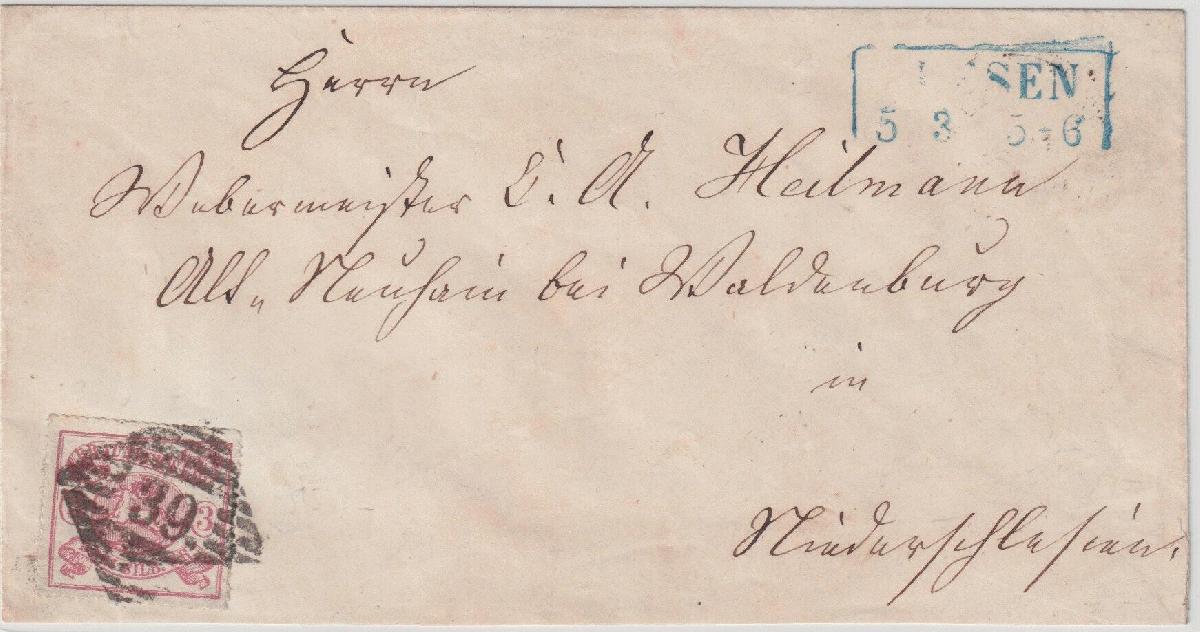 SEN
5 3 5-6
Herrn
Webermeister C. A. Heilmann
Alt„ Neuhain bei Waldenburg
in
Niederschlesien.
39.
3
SILB.